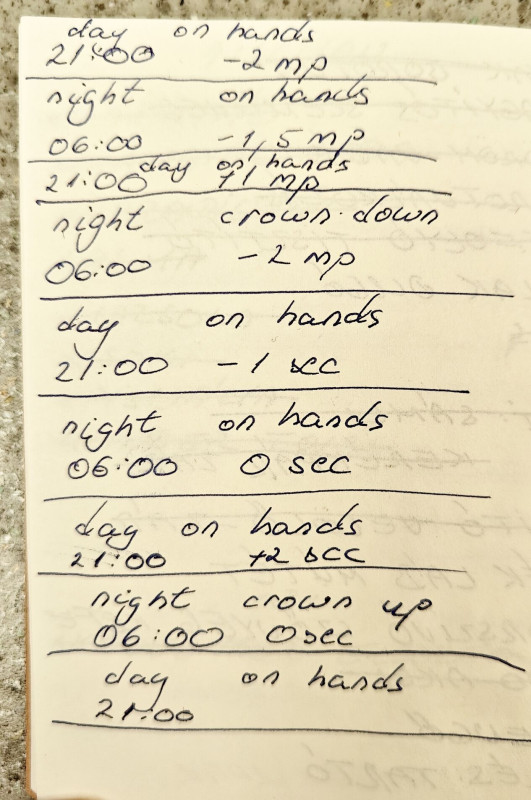 day on hands
21:00 -2 mp
night on hands
06:00 -1,5 mp
day on hands
21:00 +1 mp
night crown down
06:00 -2 mp
day on hands
21:00 -1 sec
night on hands
06:00 0 sec
day on hands
21:00 +2 sec
night crown up
06:00 0sec
day on hands
21:00